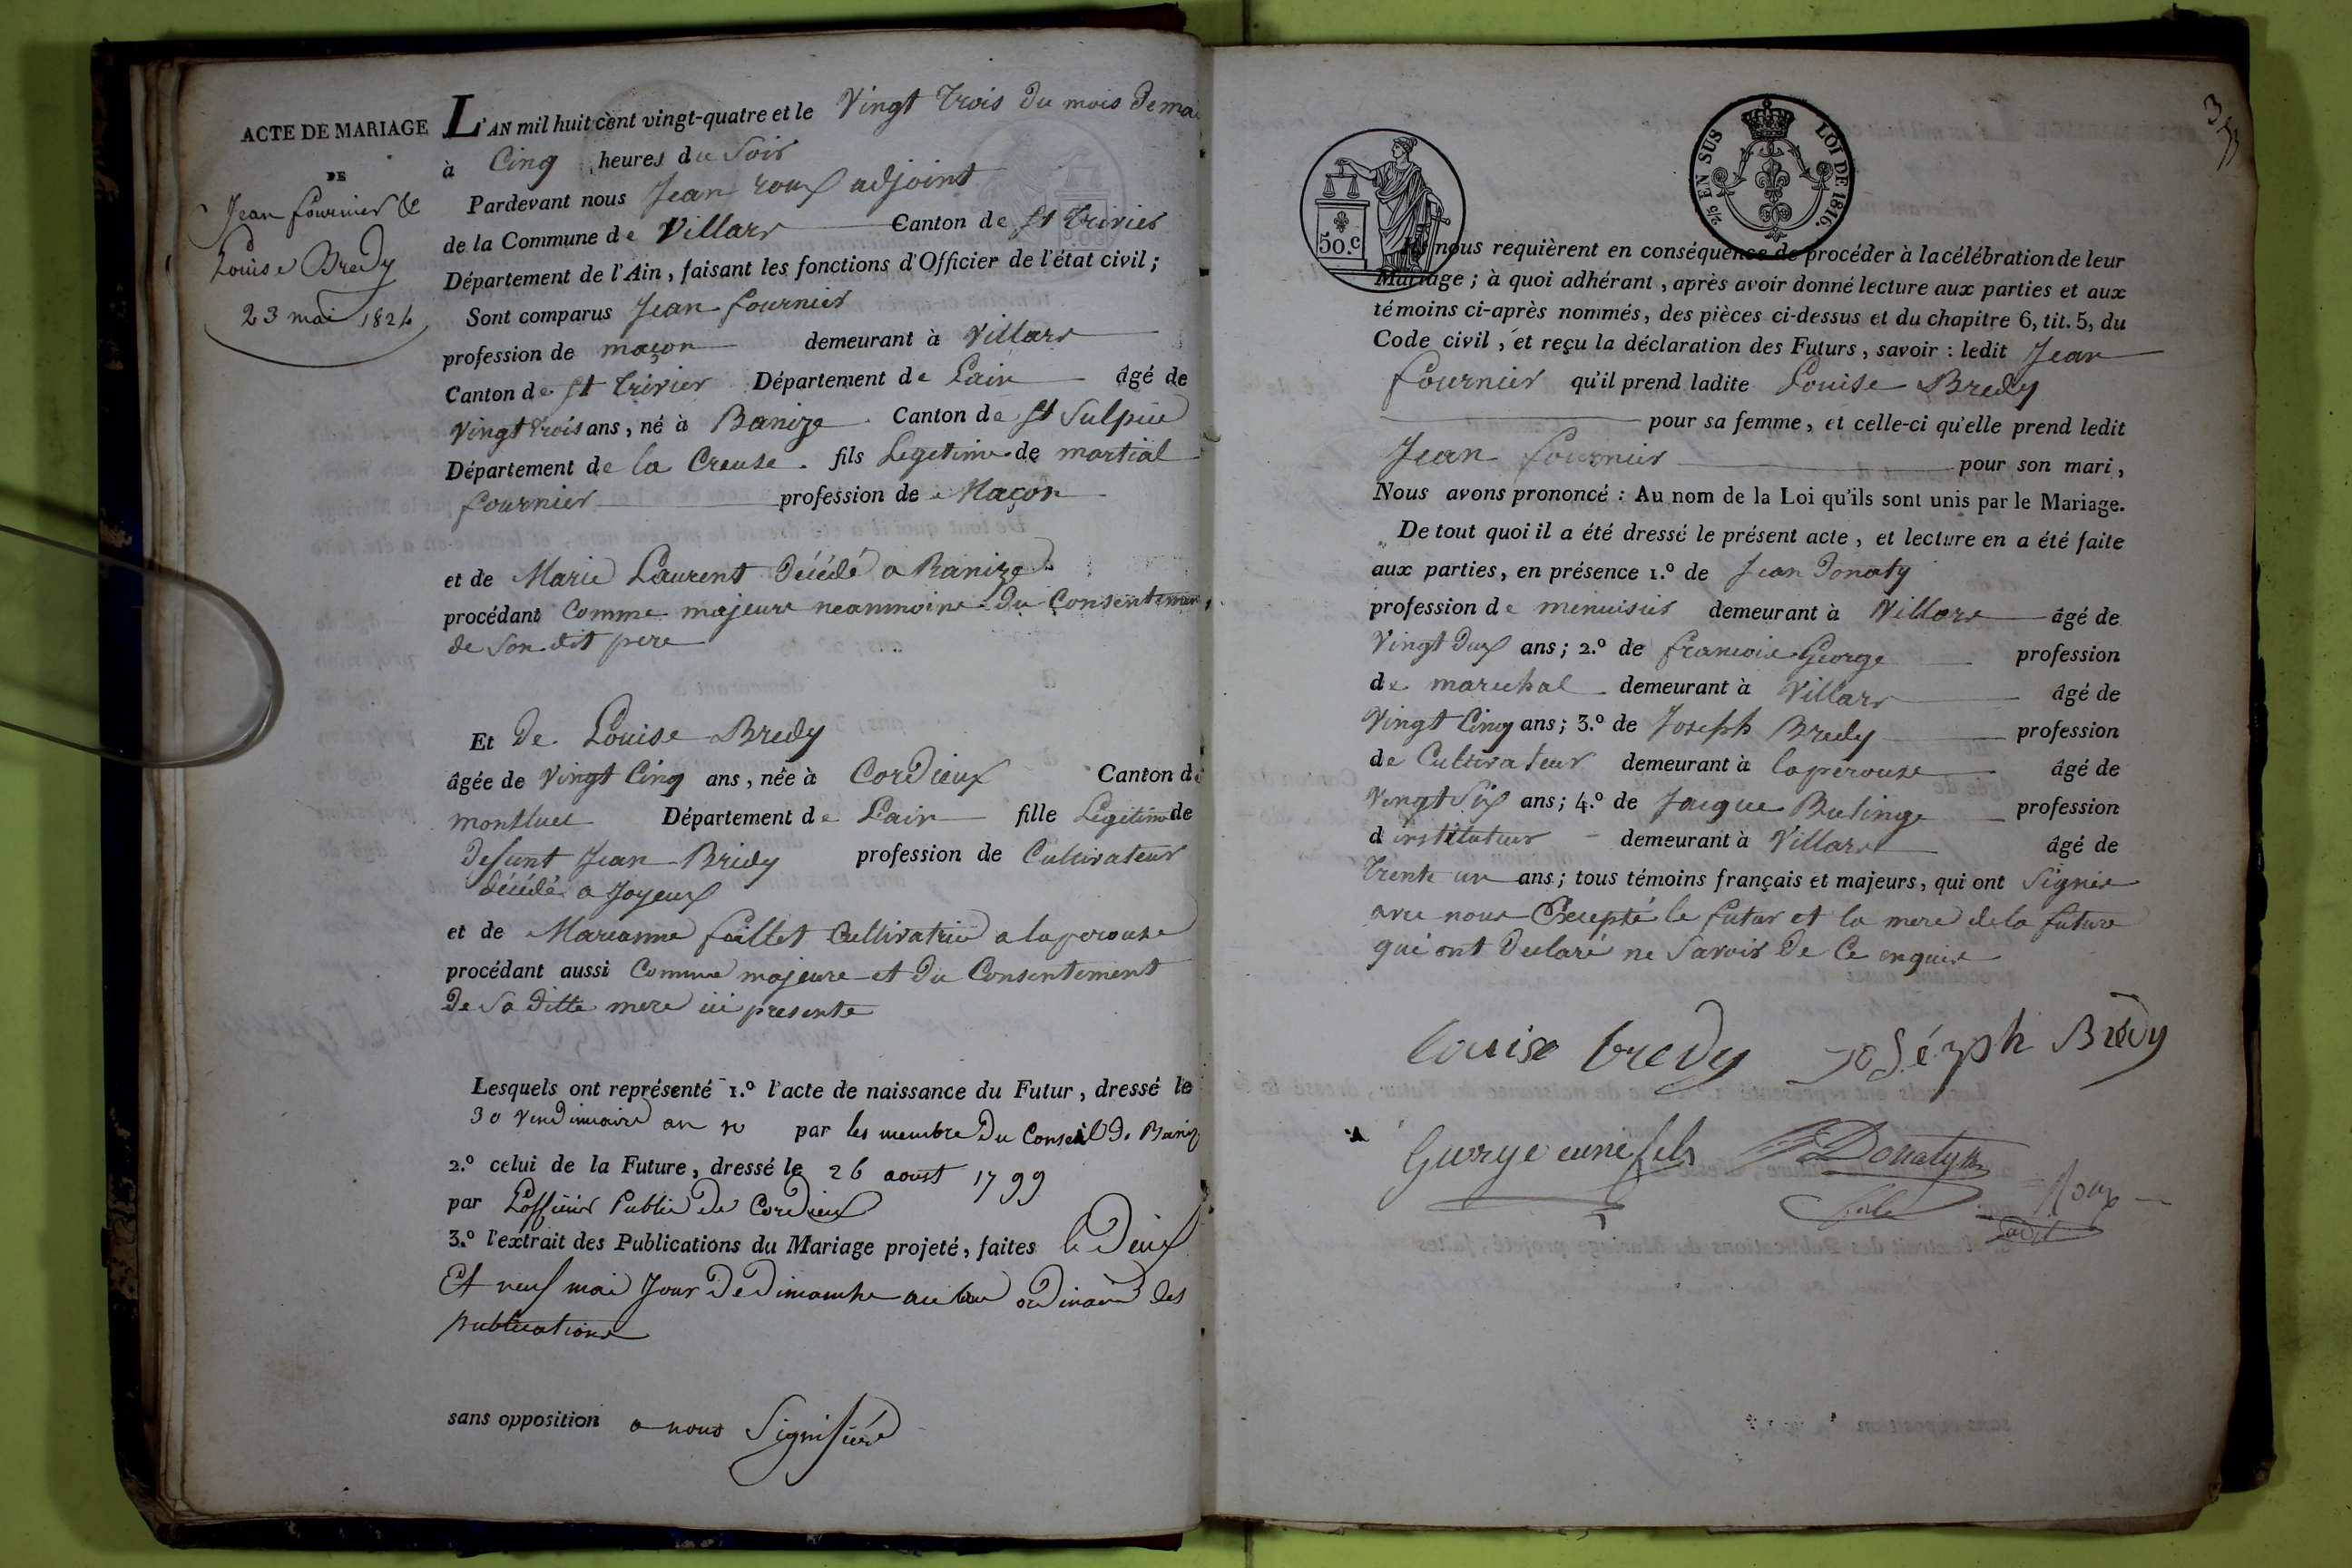 ACTE DE MARIAGE
DE
Jean fournier &
Louise Bredy
23 mai 1824
L'AN mil huit cent vingt-quatre et le Vingt trois du mois de mai
à Cinq heures du Soir
Pardevant nous Jean roux adjoint
de la Commune de Villars Canton de St trivier
Département de l'Ain, faisant les fonctions d'Officier de l'état civil;
Sont comparus Jean fournier
profession de maçon demeurant à Villars
Canton de St trivier Département de Lain âgé de
Vingt trois ans, né à Banize Canton de St Sulpice
Département de la Creuse. fils Legetime de martial
fournier profession de Maçon
et de Marie Laurent décédé a Banize
procédant Comme majeure neanmoins du Consentement
de Son dit pere
Et De Louise Bredy
âgée de Vingt Cinq ans, née à Cordieux Canton de
montluel Département de Lain fille Legitime de
defunt Jean Bredy profession de Cultivateur
décédé a Joyeux
et de Marianne faillet Cultivatrice a laperouse
procédant aussi Comme majeure et du Consentement
De Sa ditte mere ici presente
Lesquels ont représenté 1.º l'acte de naissance du Futur, dressé le
30 Vendimiaire an par les membre Du Conseil De Baniz
2.º celui de la Future, dressé le 26 aoust 1799
par Lofficier Public De Cordieux
3.º l'extrait des Publications du Mariage projeté, faites le Deux
Et neuf mai Jour De Dimanche au lieu ordinaire des
publications
sans opposition a nous Signifiée
50.C
2/5 EN SUS LOI DE 1816.
Ils nous requièrent en conséquence de procéder à la célébration de leur
Mariage; à quoi adhérant, après avoir donné lecture aux parties et aux
témoins ci-après nommés, des pièces ci-dessus et du chapitre 6, tit. 5, du
Code civil, et reçu la déclaration des Futurs, savoir: ledit Jean
fournier qu'il prend ladite Louise Bredy
pour sa femme, et celle-ci qu'elle prend ledit
Jean fournier pour son mari,
Nous avons prononcé: Au nom de la Loi qu'ils sont unis par le Mariage.
De tout quoi il a été dressé le présent acte, et lecture en a été faite
aux parties, en présence 1.º de Jean Donaty
profession de menuisier demeurant à Villars âgé de
Vingt Deux ans; 2.º de francois George profession
de marechal demeurant à Villars âgé de
Vingt Cinq ans; 3.º de Joseph Bredy profession
de Cultivateur demeurant à laperouse âgé de
Vingt Six ans; 4.º de Jacque profession
d instituteur demeurant à Villars âgé de
Trente un ans; tous témoins français et majeurs, qui ont Signés
avec nous Excepté le futur et la mere de la future
qui ont Declaré ne Savoir De Ce enquis
Louise bredy Joséph Brédy
George fils Donaty
Roux
adjt